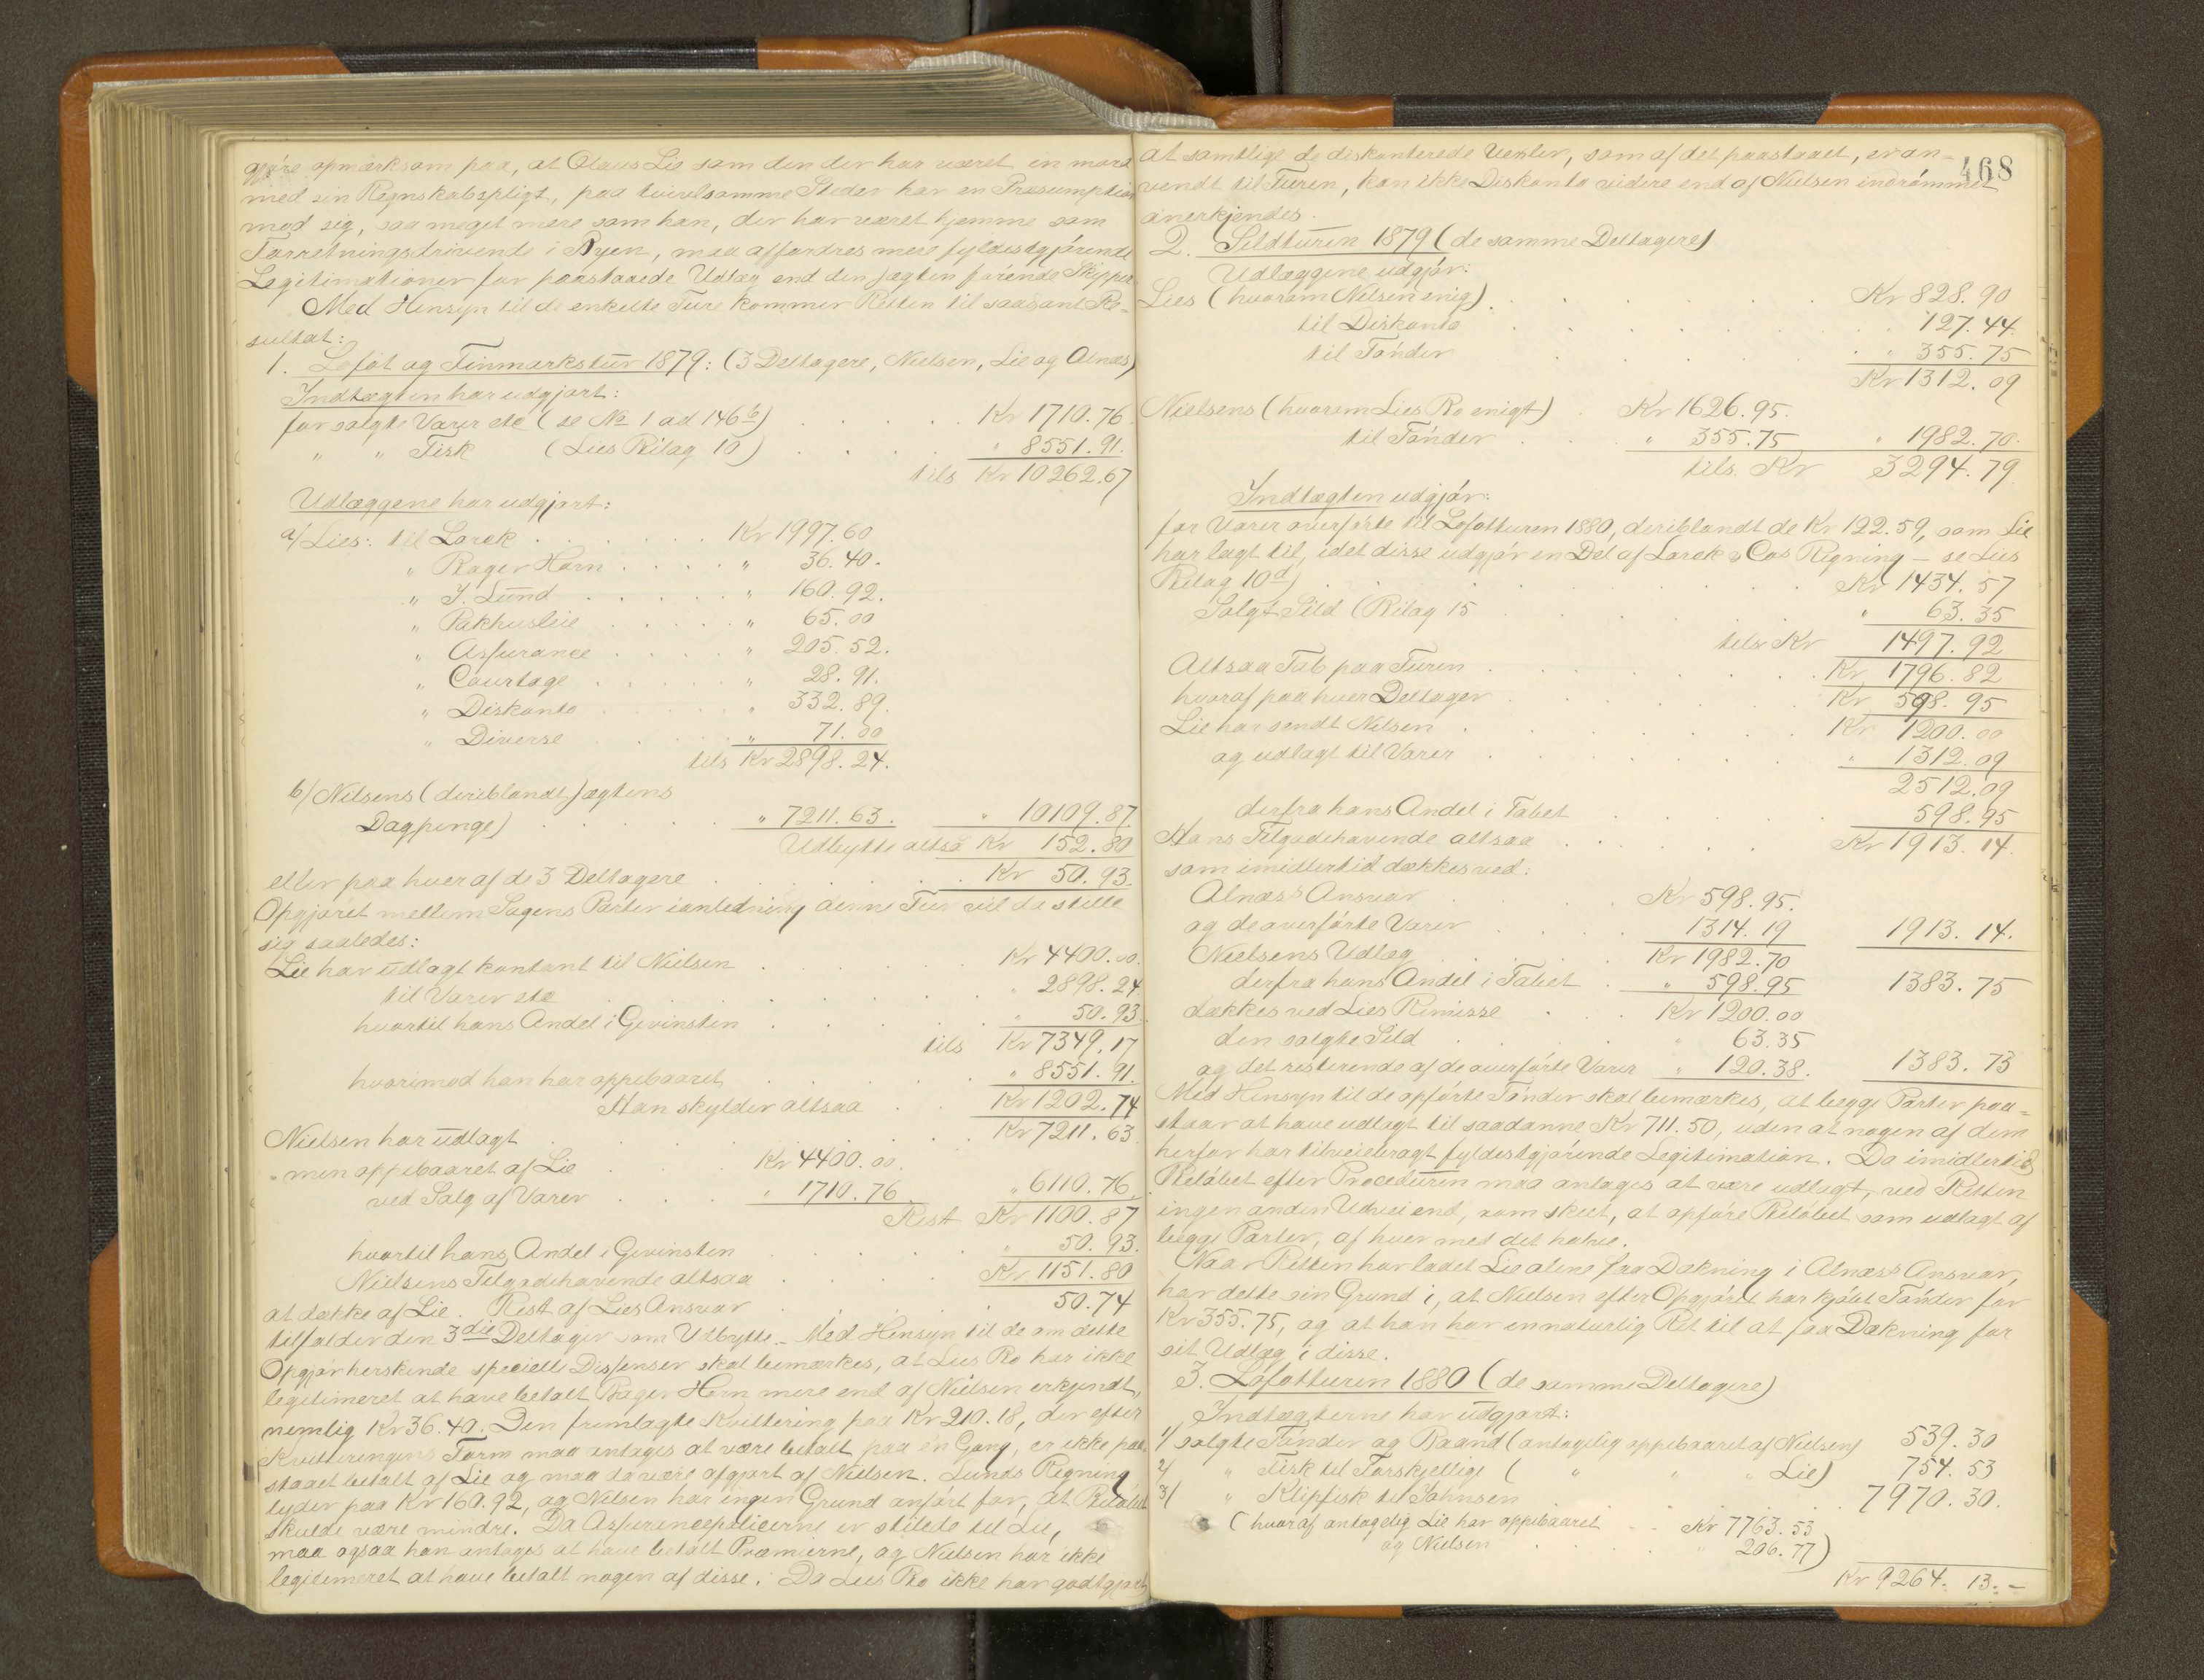 gjøre opmærksom paa, at Olaus Lie som den der har været in mora
med sin Regnskabspligt, paa tvivlsomme Steder har en Præsumption
mod sig, saa meget mere som han, der har været hjemme som
Forretningsdrivende i Byen, maa affordres mere fyldestgjørende
Legitimationer for paastaaede Udlæg end den Jægten førende Skipper
Med Hensyn til de enkelte Ture kommer Retten til saadant Re-
sultat:
1. Lofot og Finmarkstur 1879: (3 Deltagere, Nielsen, Lie og Alnæs)
Indtægten har udgjort:
for solgte Varer etc (se No 1 ad 146b) . . . . . Kr 1710.76
" " Fisk (Lies Bilag 10) . . . . " 8551.91.
tils Kr 10262.67
Udlæggene har udgjort:
a/ Lies: til Lorck . . . . . . Kr 1997.60
" Bager Horn . . . . " 36.40.
" J. Lund . . . . . " 160.92.
" Pakhusleie . . . . . " 65.00
" Assurance . . . . " 205.52.
" Courtage . . . . . " 28.91.
" Diskonto . . . . . " 332.89.
" Diverse . . . . " 71.00
tils Kr 2898.24.
b/ Nilsens (deriblandt Jægtens
Dagpenge) . . . . . " 7211.63. " 10109.87
Udbytte altså Kr 152.80
eller paa hver af de 3 Deltagere . . . . . . Kr 50.93.
Opgjøret mellem Sagens Parter i anledning denne Tur vil da stille
sig saaledes:
Lie har udlagt kontant til Nielsen . . . . . . Kr 4400.00.
til Varer etc . . . . . . . " 2898.24
hvortil hans Andel i Gevinsten . . . . . " 50.93
tils Kr 7349.17
hvorimod han har oppebaaret . . . . . " 8551.91.
Han skylder altsaa . . Kr 1202.74
Nielsen har udlagt . . . . . . . . Kr 7211.63
" men oppebaaret af Lie . . . Kr 4400.00.
ved Salg af Varer . . . " 1710.76. " 6110.76.
Rest Kr 1100.87
hvortil hans Andel i Gevinsten . . . . . " 50.93.
Nielsens Tilgodehavende altsaa . . . . Kr 1151.80
at dække af Lie. Rest af Lies Ansvar . . . . . 50.74
tilfalder den 3die Deltager som Udbytte. - Med Hensyn til de om dette
Opgjør herskende specielle Dissenser skal bemærkes, at Lies Bo har ikke
legitimeret at have betalt Bager Horn mere end af Nielsen erkjendt,
nemlig Kr 36.40. Den fremlagte Kvittering paa Kr 210.18, der efter
Kvitteringens Form maa antages at være betalt paa én Gang, er ikke paa-
staaet betalt af Lie og maa da være afgjort af Nielsen. Lunds Regning
lyder paa Kr 160.92, og Nilsen har ingen Grund anført for, at Beløbet
skulde være mindre. Da Assurancepolicerne er stilede til Lie,
maa ogsaa han antages at have betalt Præmierne, og Nielsen har ikke
legitimeret at have betalt nogen af disse. Da Lies Bo ikke har godtgjort,
468
at samtlige de diskonterede Vexler, som af det paastaaet, er an-
vendt til Turen, kan ikke Diskonto videre end af Nielsen indrømmet
anerkjendes.
2. Sildturen 1879 (de samme Deltagere)
Udlæggene udgjør:
Lies (hvorom Nielsen enig) . . . . . . . Kr 828.90
til Diskonto . . . . . . . . " 127.44.
til Tønder . . . . . . . " 355.75
Kr 1312.09
Nielsens (hvorom Lies Bo enigt) . Kr 1626.95.
til Tønder . . . " 355.75 " 1982.70.
tils. Kr 3294.79
Indtægten udgjør:
for Varer overførte til Lofotturen 1880, deriblandt de Kr 122.59, som Lie
har lagt til, idet disse udgjør en Del af Lorck & Cos Regning - se Lies
Bilag 10d) . . . . . . . . Kr 1434.57
Solgt Sild (Bilag 15 . . . . . . . " 63.35
tils Kr 1497.92
Altsaa Tab paa Turen . . . . . . . Kr 1796.82
hvoraf paa hver Deltager . . . . . . Kr 598.95
Lie har sendt Nilsen . . . . . . . Kr 1200.00
og udlagt til Varer . . . . . . . " 1312.09
2512.09
derfra hans Andel i Tabet . . . . . 598.95
Hans Tilgodehavende altsaa . . . . . . Kr 1913.14.
som imidlertid dækkes ved:
Alnæs's Ansvar . . . . . Kr 598.95.
og de overførte Varer . . . . . 1314.19 1913.14.
Nielsens Udlæg . . . . . Kr 1982.70
derfra hans Andel i Tabet . " 598.95 1383.75
dækkes ved Lies Rimesse . . . Kr 1200.00
den solgte Sild . . . . " 63.35
og det resterende af de overførte Varer " 120.38. 1383.73
Med Hensyn til de opførte Tønder skal bemærkes, at begge Parter paa-
staar at have udlagt til saadanne Kr 711.50, uden at nogen af dem
herfor har tilveiebragt fyldestgjørende Legitimation. Da imidlertid
Beløbet efter Proceduren maa antages at være udlagt, ved Retten
ingen anden Udvei end, som skeet, at opføre Beløbet som udlagt af
begge Parter, af hver med det halve.
Naar Retten har ladet Lie alene faa Dækning i Alnæs's Ansvar,
har dette sin Grund i, at Nielsen efter Opgjøret har kjøbt Tønder for
Kr 355.75, og at han har en naturlig Ret til at faa Dækning for
sit Udlæg i disse.
3. Lofotturen 1880 (de samme Deltagere)
Indtægterne har udgjort:
1/ solgte Tønder og Baand (antagelig oppebaaret af Nielsen) 539.30
2/ " Fisk til Forskjellige ( " " " Lie) 754.53
3/ " Klipfisk til Johnsen . . . . . . . 7970.30.
(hvoraf antagelig Lie har oppebaaret . . Kr 7763.53
og Nielsen . . . . " 206.77)
Kr 9264.13.-